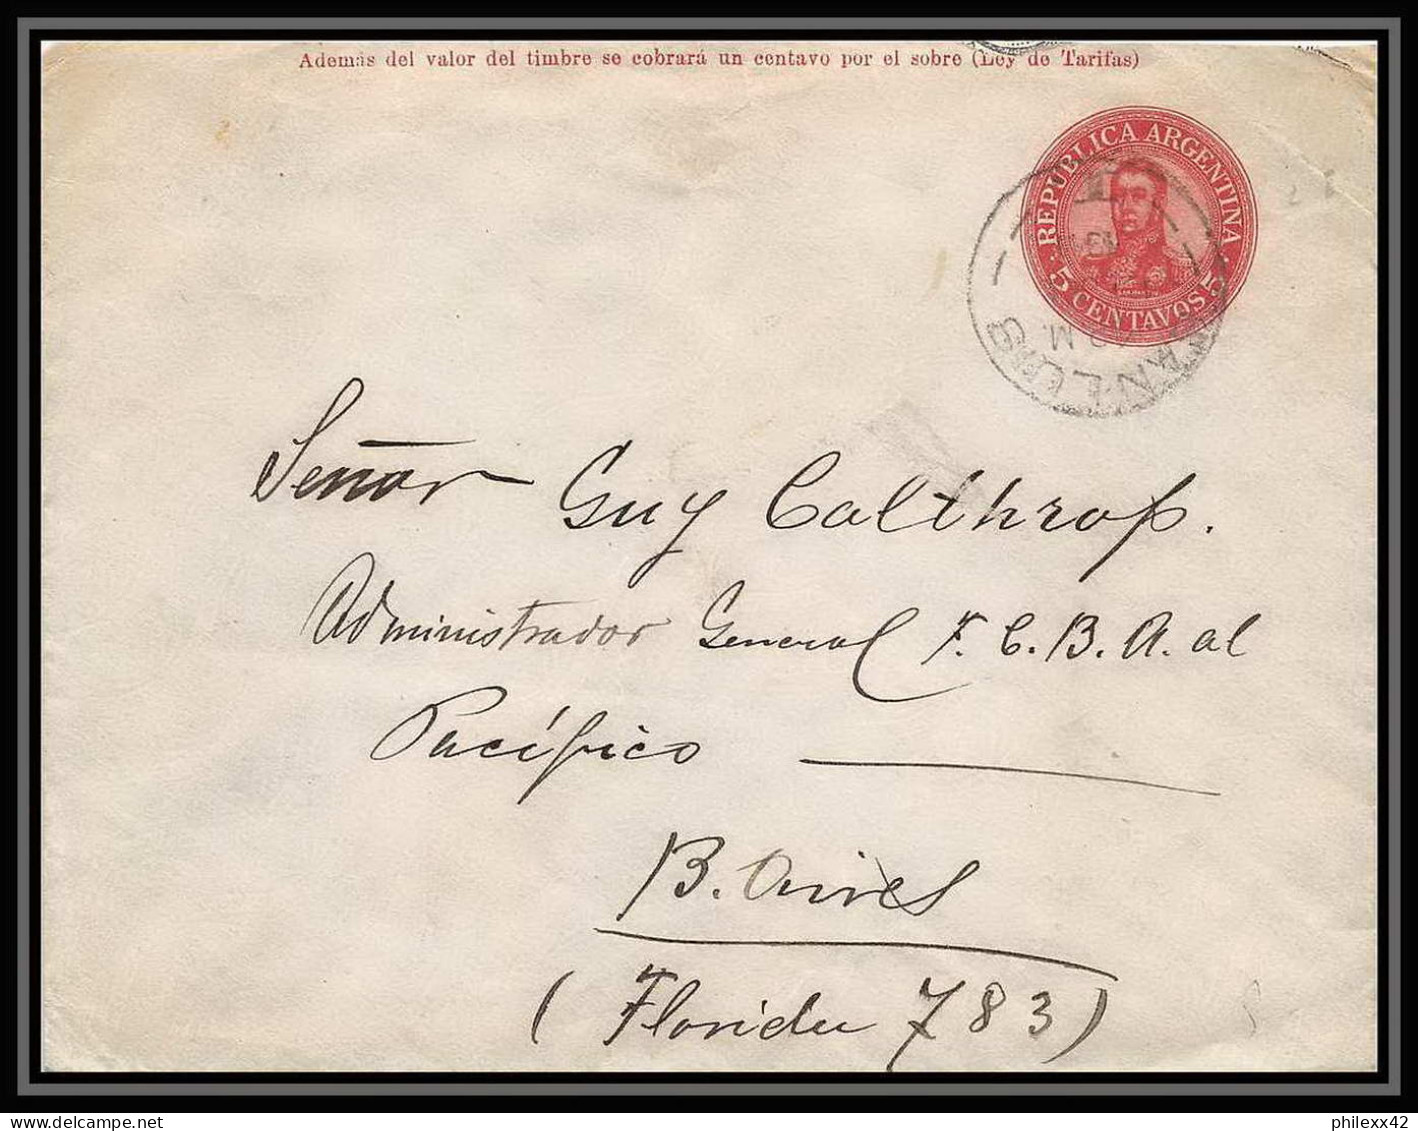 Además del valor del timbre se cobrará un centavo por el sobre (Ley de Tarifas)
REPUBLICA ARGENTINA
5 CENTAVOS 5
SAN LUIS
Señor Guy Calthrop.
Administrador General F. C. B. A. al
Pacífico
B. Aires
(Florida 783)
philexx42